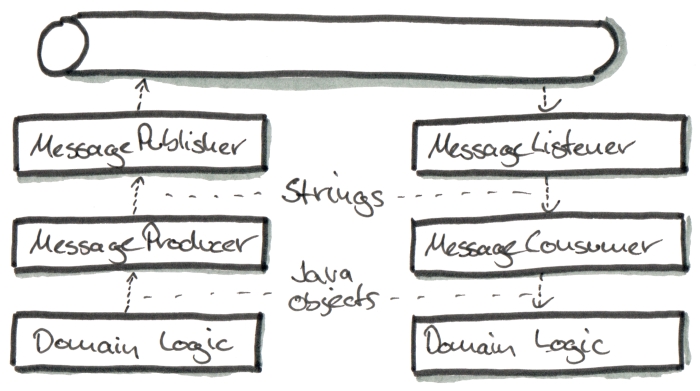 MessagePublisher
MessageListener
Strings
MessageProducer
MessageConsumer
Java
objects
Domain Logic
Domain Logic